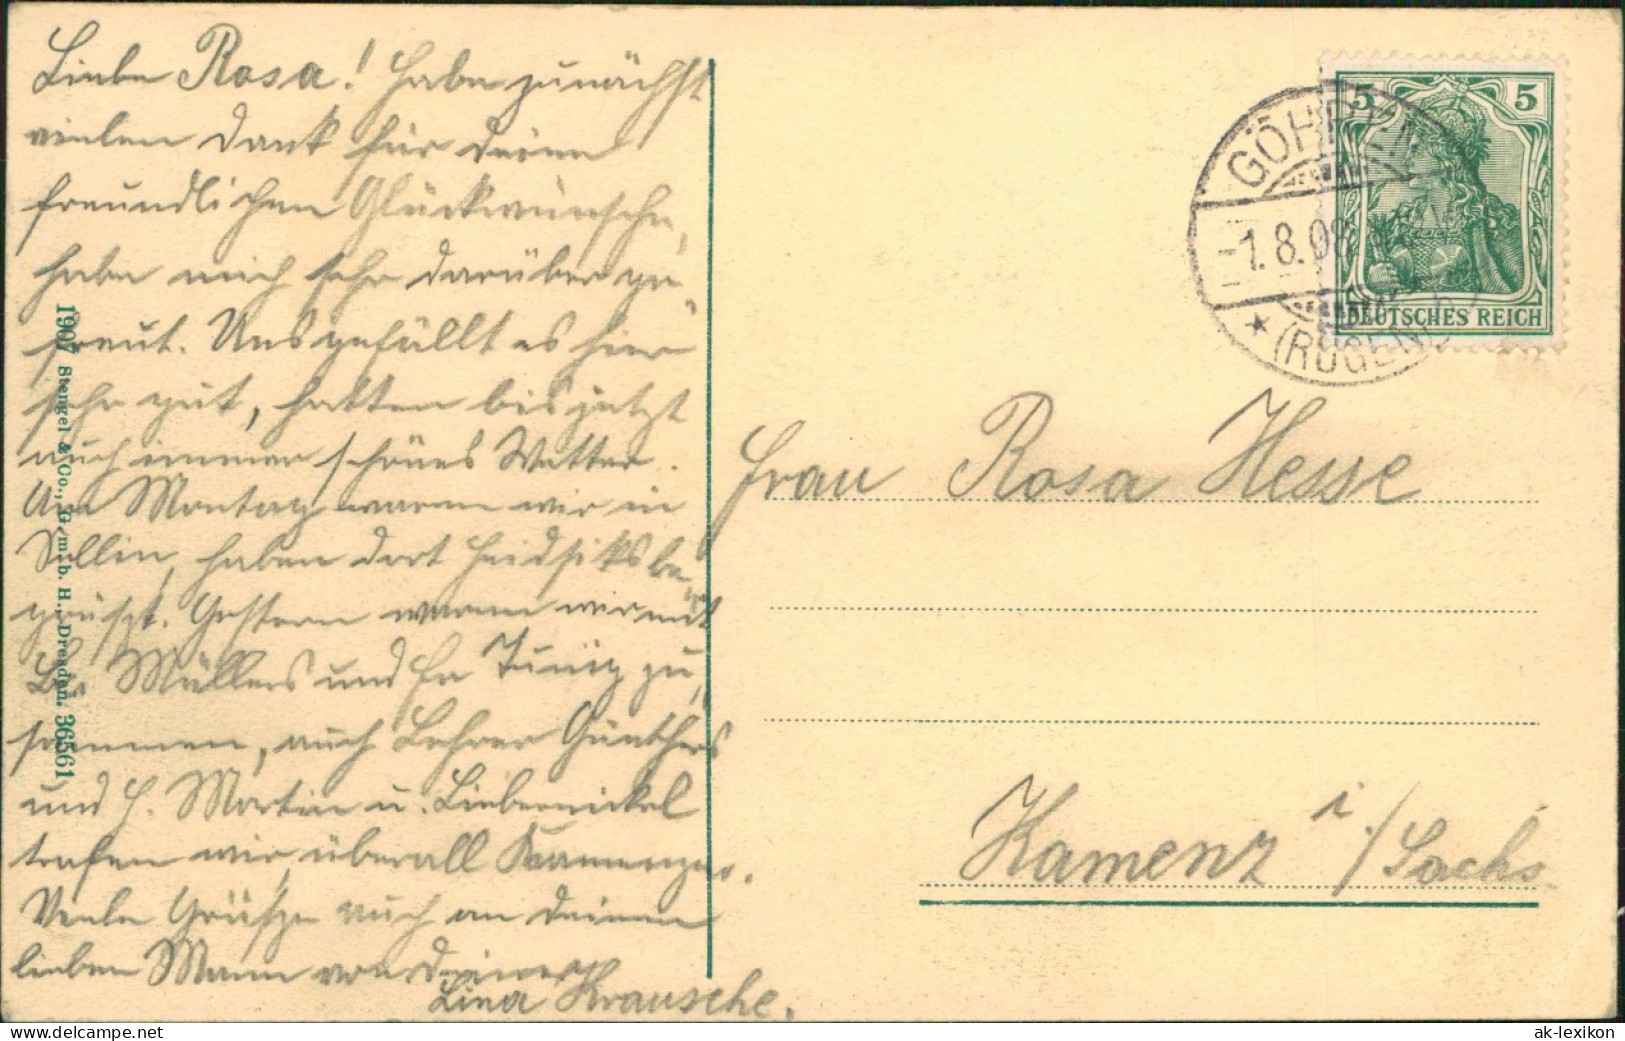 Liebe Rosa! Habe zunächst
vielen Dank für Deine
freundlichen Glückwünsche,
habe mich sehr darüber ge-
freut. Uns gefällt es hier
sehr gut, hatten bis jetzt
auch immer schönes Wetter.
Am Montag waren wir in
Sellin, haben dort Heidsieks be-
grüßt. Gestern waren wir mit
Müllers und Frl. zu
sammen, auch Lehrer Günthers
und H. Martin u. Liebernickel
trafen wir, überall Kamenzer.
Viele Grüße auch an Deinen
lieben Mann von Deiner
Lina Krausche.
1907 Stengel & Co., G. m. b. H., Dresden. 36561
5 5
DEUTSCHES REICH
GÖHREN
-1.8.08
* (RÜGEN)
Frau Rosa Hesse
Kamenz i/Sachs.
www.delcampe.net
ak-lexikon